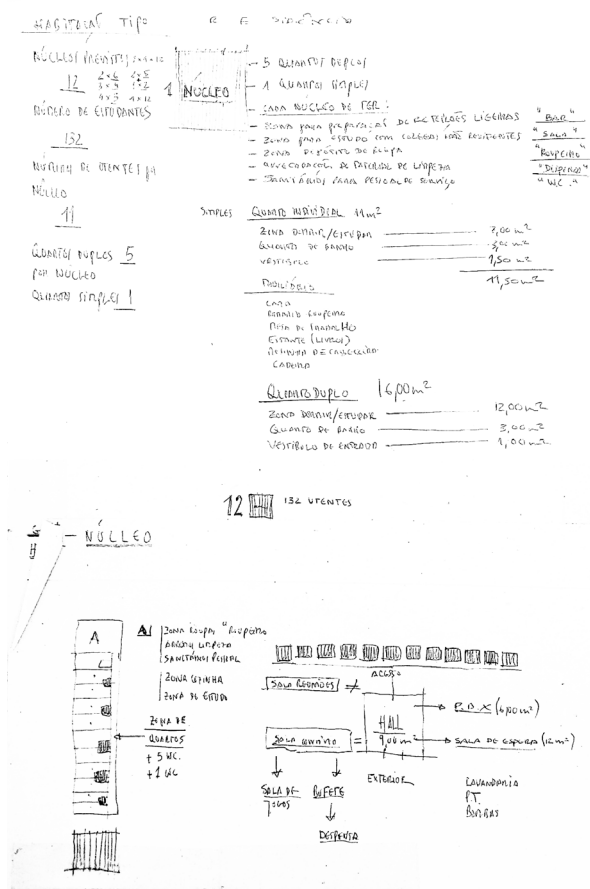 HABITAÇÃO TIPO RESIDÊNCIA
NÚCLEOS PREVISTOS
12
2 x 6
3 x 4
4 x 3
NÚMERO DE ESTUDANTES
132
NÚMERO DE UTENTES
NÚCLEO
11
QUARTOS DUPLOS 5
POR NÚCLEO
QUARTOS SIMPLES 1
1 NÚCLEO
— 5 QUARTOS DUPLOS
— 1 QUARTOS SIMPLES
— CADA NÚCLEO DE TER:
— ZONA para preparação DE REFEIÇÕES LIGEIRAS "BAR"
— ZONA para ESTUDO com COLEGAS NÃO RESIDENTES "SALA"
— ZONA DEPÓSITO DE ROUPA "ROUPEIRO"
— ARRECADAÇÃO DE MATERIAL DE LIMPEZA "DISPENSA"
— SANITÁRIOS PARA PESSOAL DE SERVIÇO "W.C."
SIMPLES QUARTO INDIVIDUAL 11 m²
ZONA DORMIR/ESTUDAR 7,00 m²
QUARTO DE BANHO 3,00 m²
VESTÍBULO 1,50 m²
11,50 m²
MOBILIÁRIO
CAMA
ROUPEIRO
MESA DE TRABALHO
ESTANTE (LIVROS)
MESINHA DE CABECEIRA
CADEIRA
QUARTO DUPLO 16,00 m²
ZONA DORMIR/ESTUDAR 12,00 m²
QUARTO DE BANHO 3,00 m²
VESTÍBULO DE ENTRADA 1,00 m²
12 132 UTENTES
G/H — NÚCLEO
A
A ZONA ROUPA "ROUPEIRO
ARRUM LIMPEZA
SANITÁRIOS PESSOAL
ZONA COZINHA
ZONA DE ESTUDO
ZONA DE
QUARTOS
+ 5 WC.
+ 1 WC
SALA REUNIÕES ≠
ACESSO
P.B.X (6,00 m²)
SALA CONVÍVIO =
HALL
9,00 m²
SALA DE ESPERA (12 m²)
EXTERIOR
SALA DE
JOGOS
BUFETE
DESPENSA
LAVANDARIA
P.T.
BOMBAS